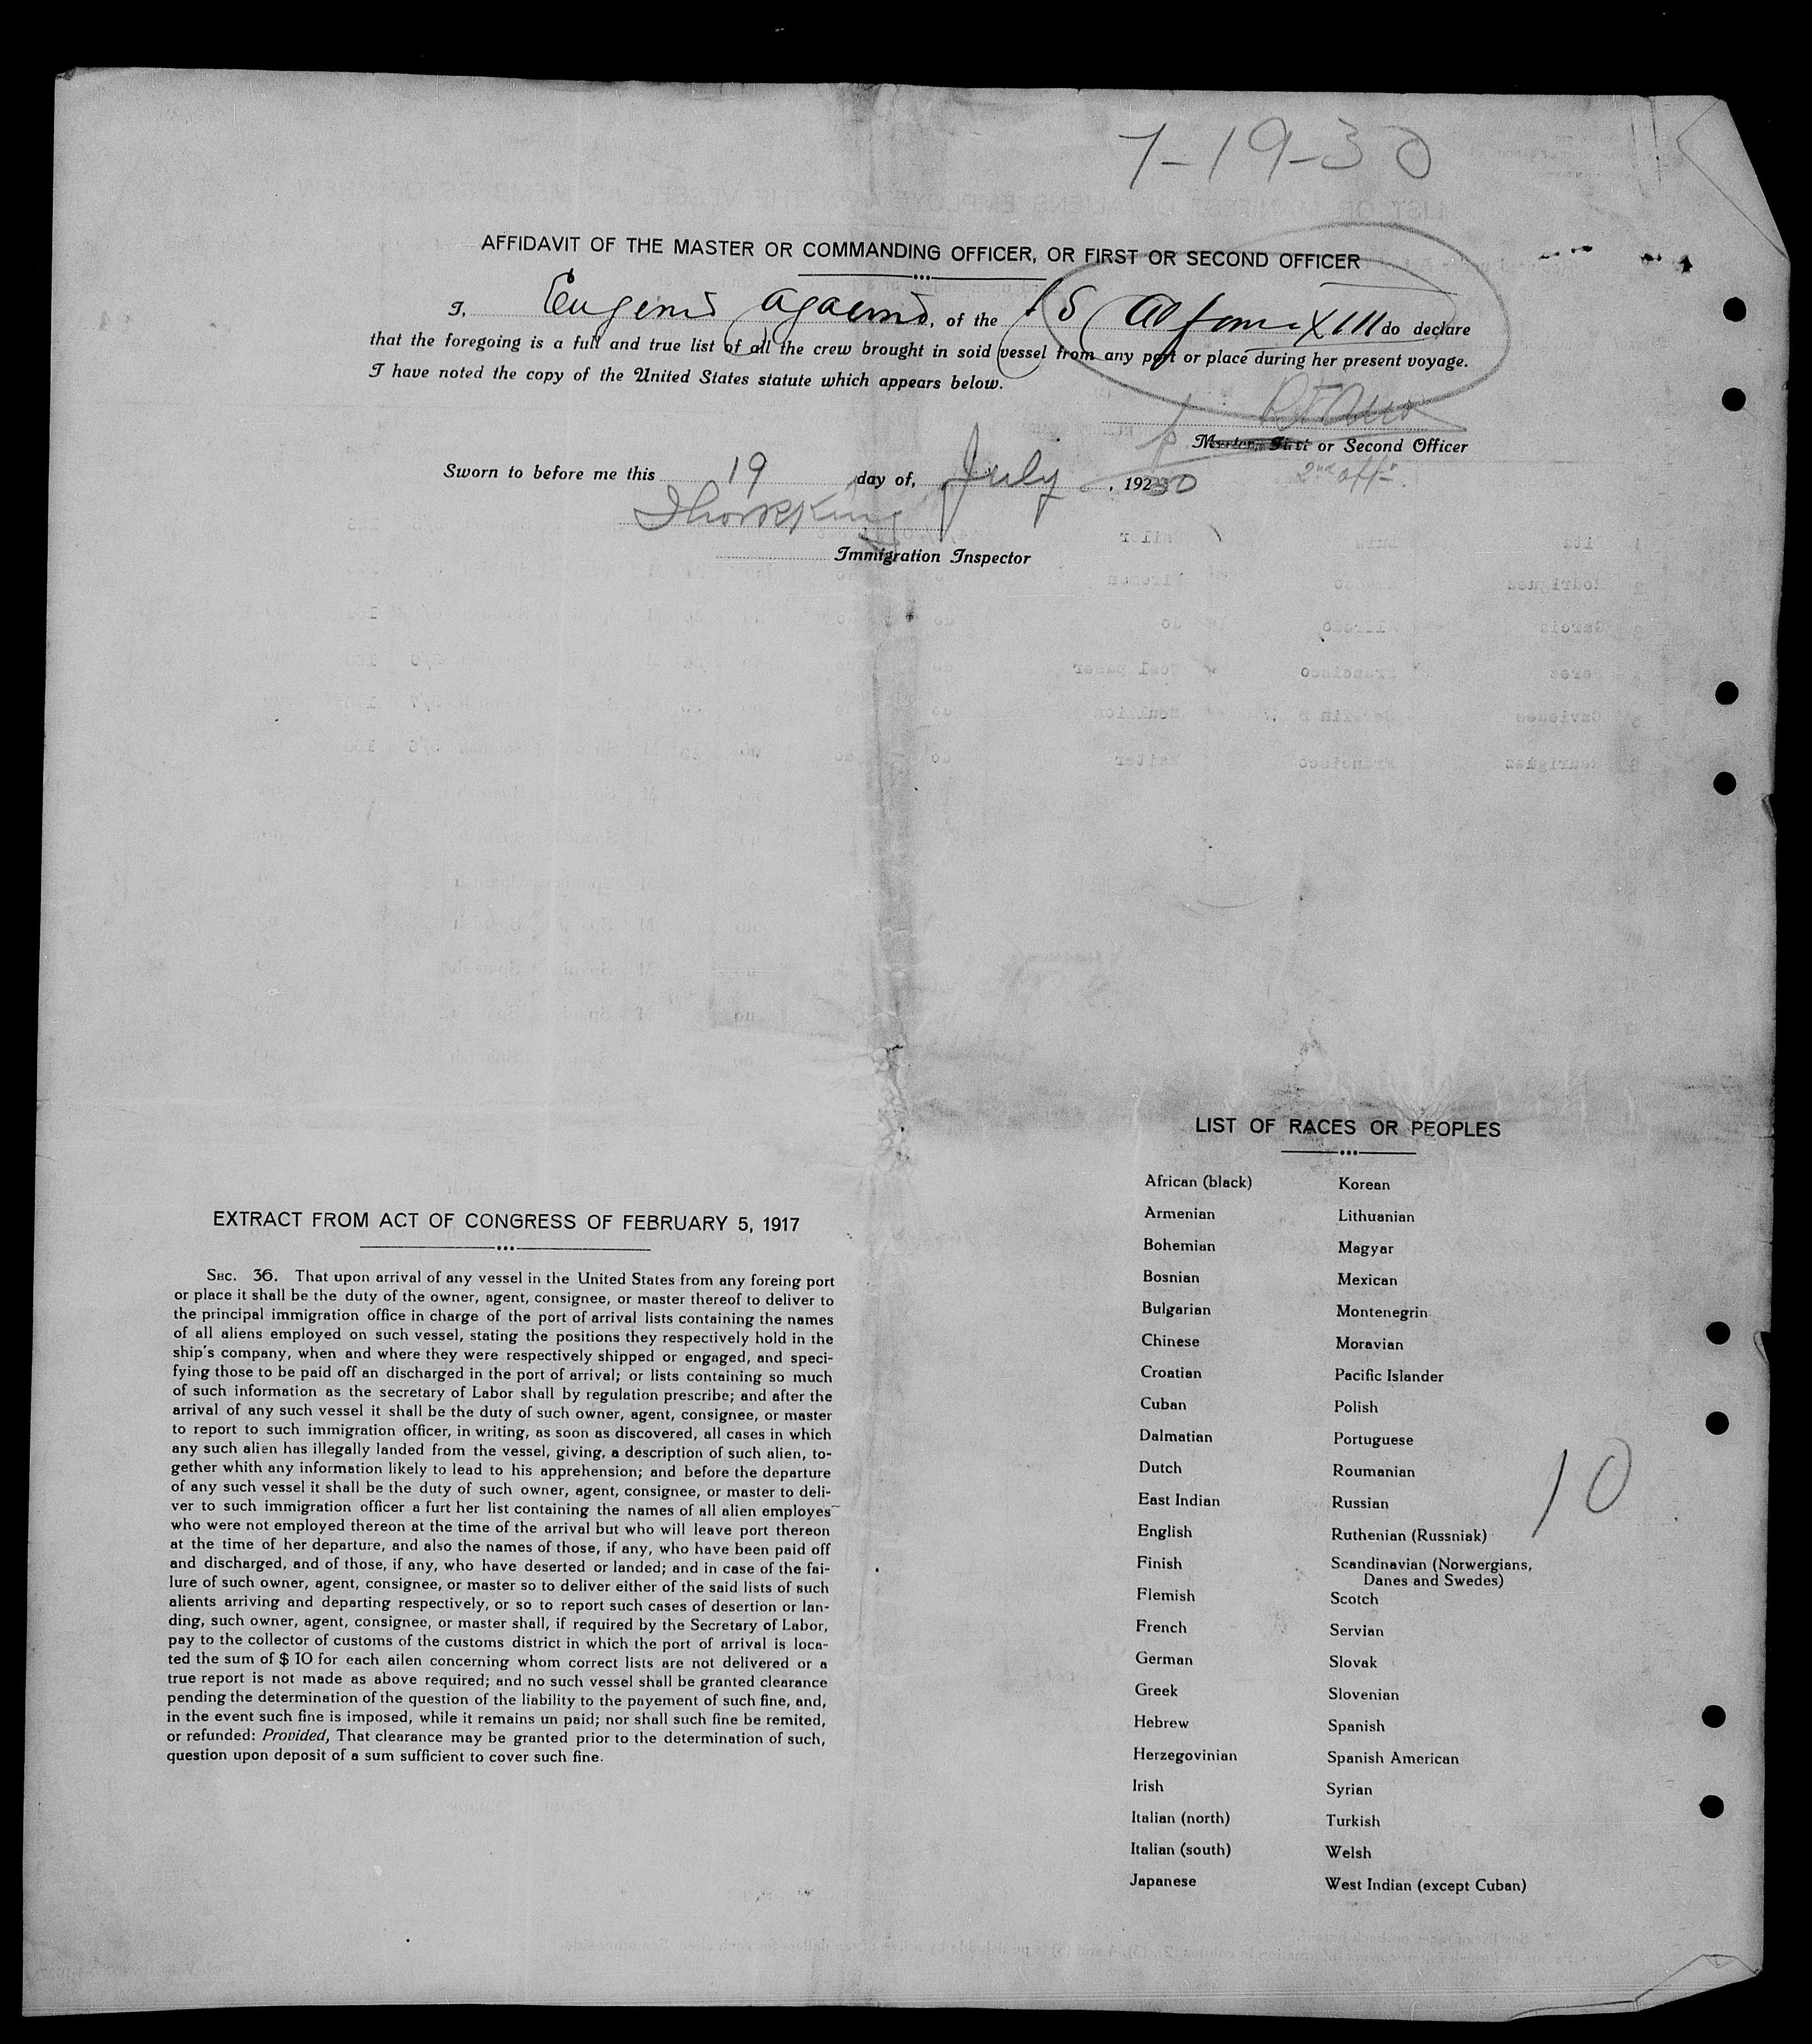 7-19-30
AFFIDAVIT OF THE MASTER OR COMMANDING OFFICER, OR FIRST OR SECOND OFFICER
I, Eugenio , of the SS Alfonso XIII do declare
that the foregoing is a full and true list of all the crew brought in soid vessel from any port or place during her present voyage.
I have noted the copy of the United States statute which appears below.
Master, First or Second Officer
2nd off.
Sworn to before me this 19 day of, July , 1930
Immigration Inspector
LIST OF RACES OR PEOPLES
African (black) Korean
Armenian Lithuanian
Bohemian Magyar
Bosnian Mexican
Bulgarian Montenegrin
Chinese Moravian
Croatian Pacific Islander
Cuban Polish
Dalmatian Portuguese
Dutch Roumanian
East Indian Russian
English Ruthenian (Russniak)
Finish Scandinavian (Norwergians,
Danes and Swedes)
Flemish Scotch
French Servian
German Slovak
Greek Slovenian
Hebrew Spanish
Herzegovinian Spanish American
Irish Syrian
Italian (north) Turkish
Italian (south) Welsh
Japanese West Indian (except Cuban)
10
EXTRACT FROM ACT OF CONGRESS OF FEBRUARY 5, 1917
SEC. 36. That upon arrival of any vessel in the United States from any foreing port
or place it shall be the duty of the owner, agent, consignee, or master thereof to deliver to
the principal immigration office in charge of the port of arrival lists containing the names
of all aliens employed on such vessel, stating the positions they respectively hold in the
ship's company, when and where they were respectively shipped or engaged, and speci-
fying those to be paid off an discharged in the port of arrival; or lists containing so much
of such information as the secretary of Labor shall by regulation prescribe; and after the
arrival of any such vessel it shall be the duty of such owner, agent, consignee, or master
to report to such immigration officer, in writing, as soon as discovered, all cases in which
any such alien has illegally landed from the vessel, giving, a description of such alien, to-
gether whith any information likely to lead to his apprehension; and before the departure
of any such vessel it shall be the duty of such owner, agent, consignee, or master to deli-
ver to such immigration officer a furt her list containing the names of all alien employes
who were not employed thereon at the time of the arrival but who will leave port thereon
at the time of her departure, and also the names of those, if any, who have been paid off
and discharged, and of those, if any, who have deserted or landed; and in case of the fai-
lure of such owner, agent, consignee, or master so to deliver either of the said lists of such
alients arriving and departing respectively, or so to report such cases of desertion or lan-
ding, such owner, agent, consignee, or master shall, if required by the Secretary of Labor,
pay to the collector of customs of the customs district in which the port of arrival is loca-
ted the sum of $ 10 for each ailen concerning whom correct lists are not delivered or a
true report is not made as above required; and no such vessel shall be granted clearance
pending the determination of the question of the liability to the payement of such fine, and,
in the event such fine is imposed, while it remains un paid; nor shall such fine be remited,
or refunded: Provided, That clearance may be granted prior to the determination of such,
question upon deposit of a sum sufficient to cover such fine.